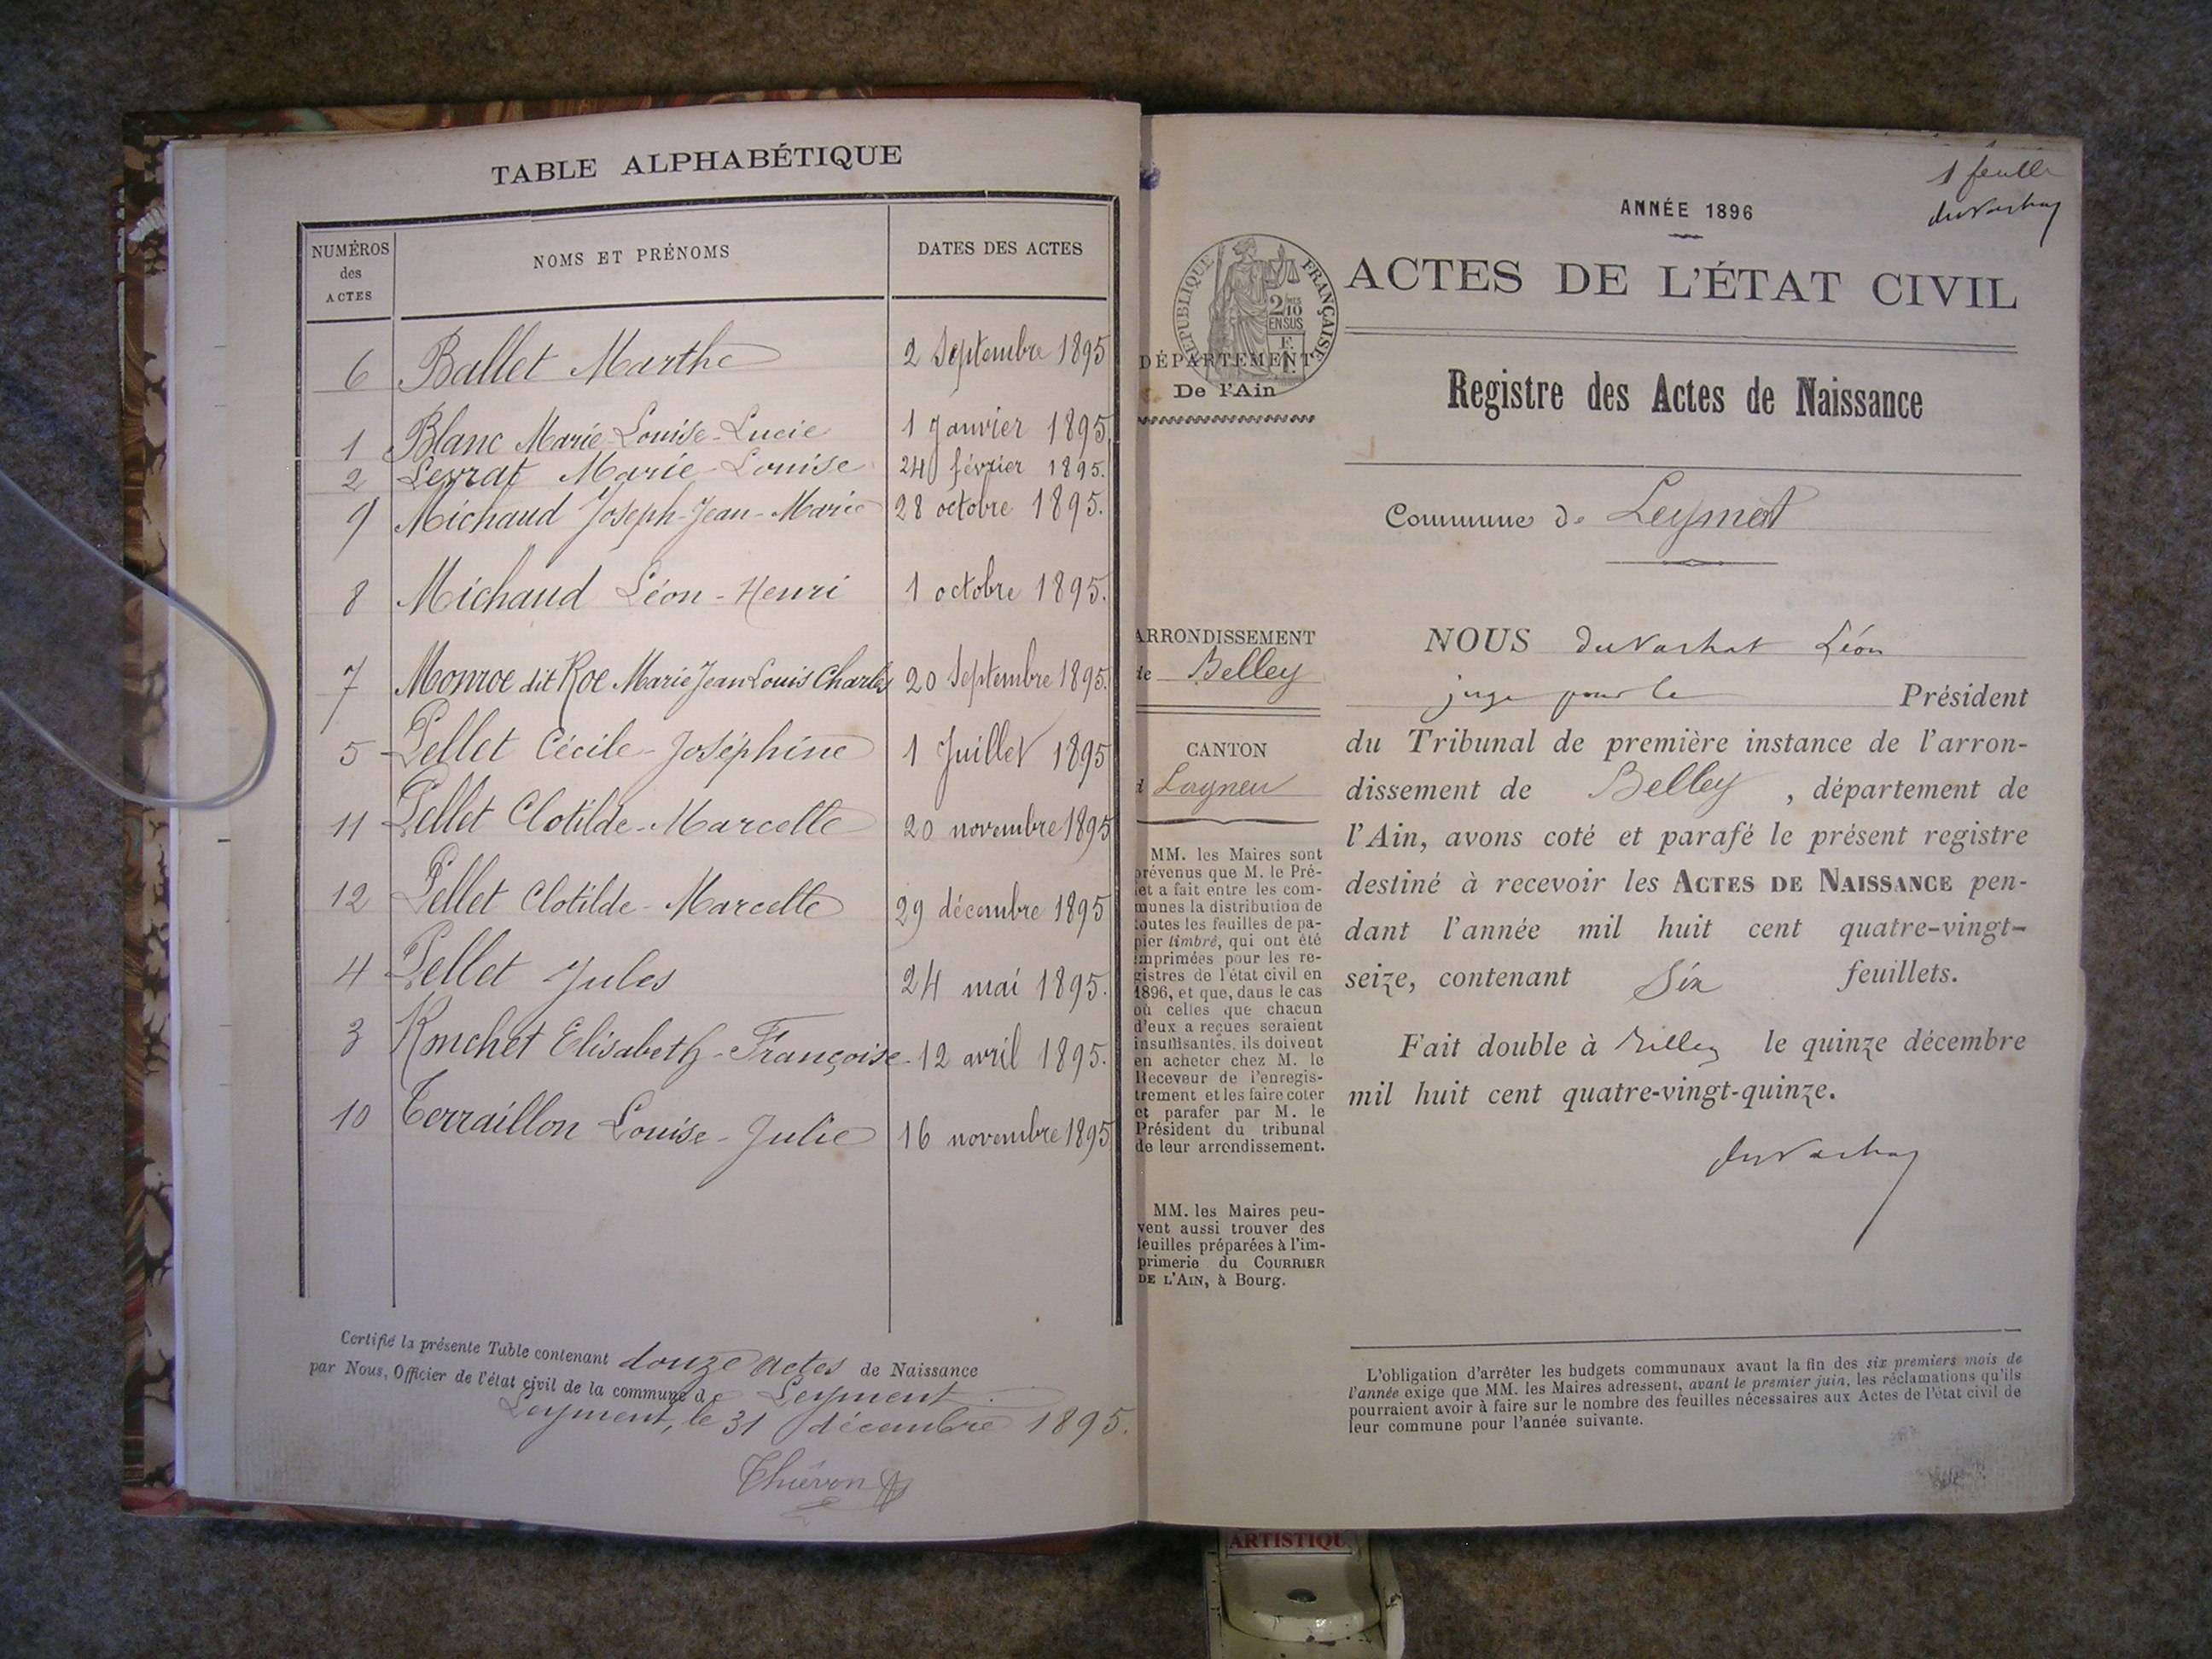 TABLE ALPHABÉTIQUE
NUMÉROS
des
ACTES
NOMS ET PRÉNOMS
DATES DES ACTES
6 Ballet Marthe 2 Septembre 1895
1 Blanc Marie-Louise-Lucie 1 Janvier 1895
2 Levrat Marie-Louise 24 février 1895.
9 Michaud Joseph-Jean-Marie 28 octobre 1895.
8 Michaud Léon-Henri 1 octobre 1895.
7 Monroe dit Roe Marie Jean Louis Charles 20 Septembre 1895.
5 Pellet Cécile-Joséphine 1 Juillet 1895
11 Pellet Clotilde-Marcelle 20 novembre 1895
12 Pellet Clotilde-Marcelle 29 décembre 1895
4 Pellet Jules 24 mai 1895.
3 Ronchet Elisabeth-Françoise 12 avril 1895.
10 Terraillon Louise-Julie 16 novembre 1895
Certifié la présente Table contenant douze actes de Naissance
par Nous, Officier de l'état civil de la commune de Leyment.
Leyment, le 31 décembre 1895.
Thiévon
1 feuille
duvachat
ANNÉE 1896
RÉPUBLIQUE FRANÇAISE
2/10
EN SUS
ACTES DE L'ÉTAT CIVIL
DÉPARTEMENT
De l'Ain
Registre des Actes de Naissance
Commune de Leyment
ARRONDISSEMENT
de Belley
CANTON
d Lagneu
MM. les Maires sont
prévenus que M. le Pré-
fet a fait entre les com-
munes la distribution de
toutes les feuilles de pa-
pier timbré, qui ont été
imprimées pour les re-
gistres de l'état civil en
1896, et que, dans le cas
où celles que chacun
d'eux a reçues seraient
insuffisantes, ils doivent
en acheter chez M. le
Receveur de l'enregis-
trement et les faire coter
et parafer par M. le
Président du tribunal
de leur arrondissement.
MM. les Maires peu-
vent aussi trouver des
feuilles préparées à l'im-
primerie du COURRIER
DE L'AIN, à Bourg.
NOUS duvachat Léon
juge pour le Président
du Tribunal de première instance de l'arron-
dissement de Belley, département de
l'Ain, avons coté et parafé le présent registre
destiné à recevoir les ACTES DE NAISSANCE pen-
dant l'année mil huit cent quatre-vingt-
seize, contenant Six feuillets.
Fait double à Belley le quinze décembre
mil huit cent quatre-vingt-quinze.
duvachat
L'obligation d'arrêter les budgets communaux avant la fin des six premiers mois de
l'année exige que MM. les Maires adressent, avant le premier juin, les réclamations qu'ils
pourraient avoir à faire sur le nombre des feuilles nécessaires aux Actes de l'état civil de
leur commune pour l'année suivante.
ARTISTIQU